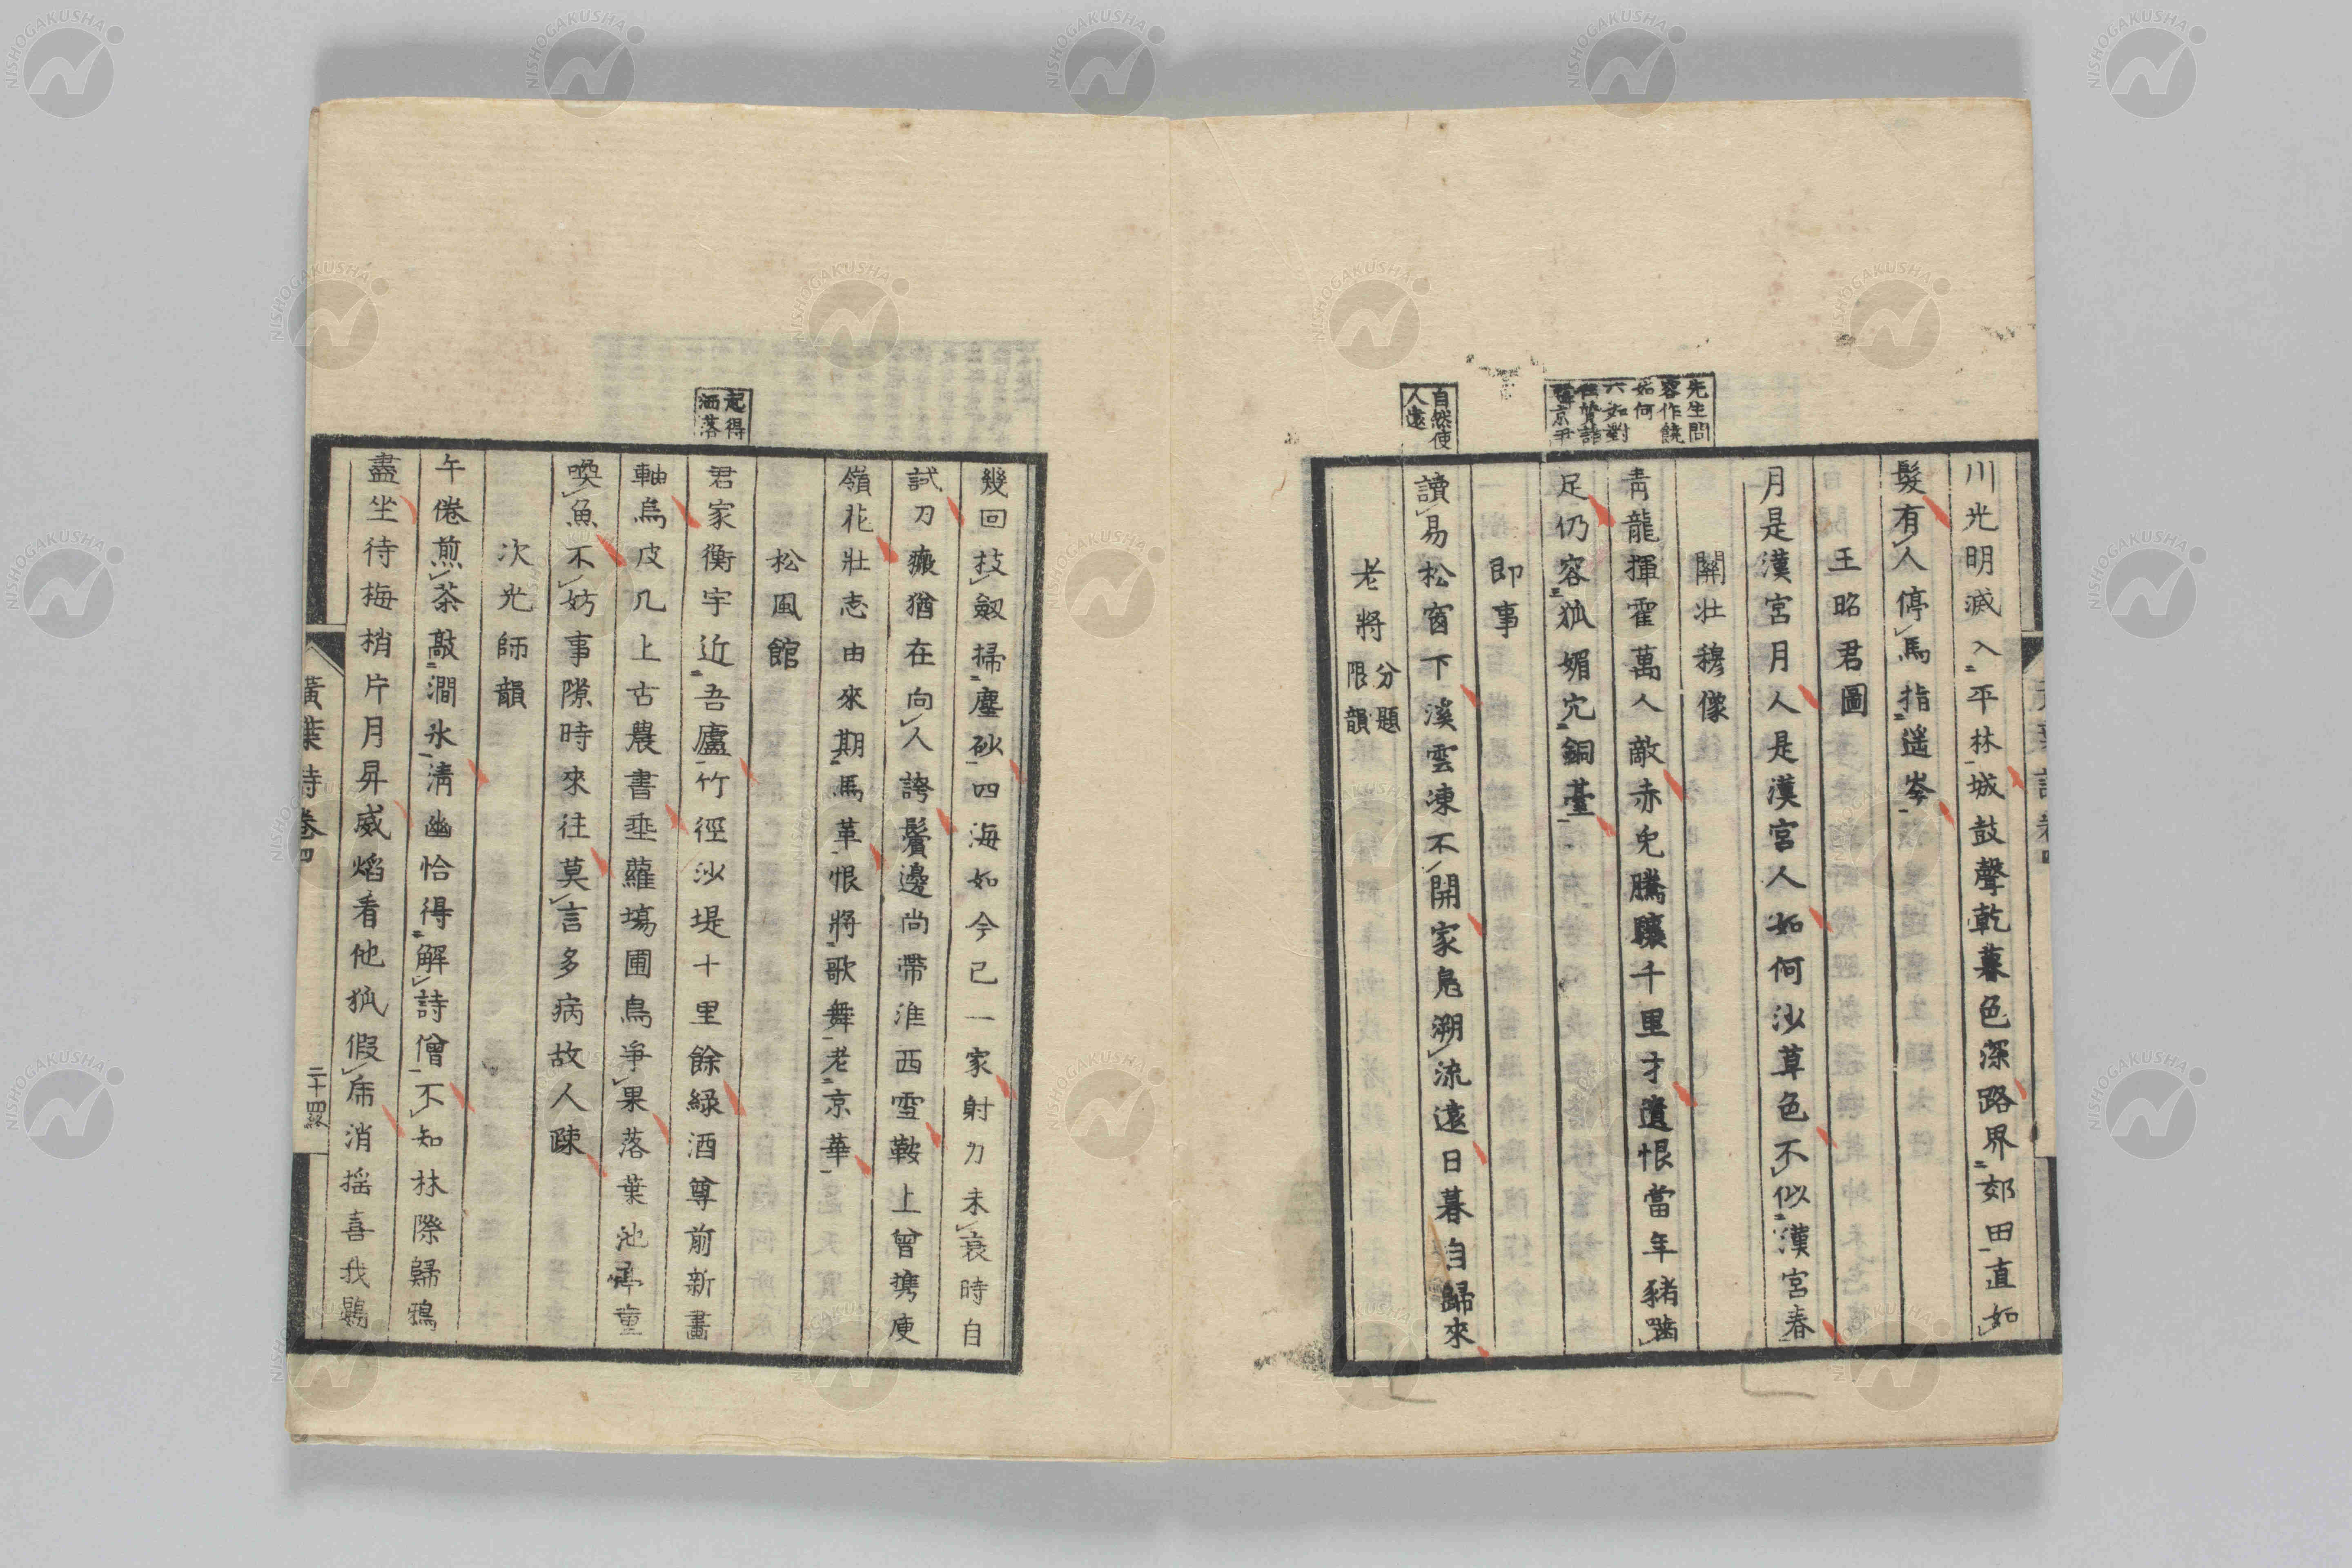 先生問
容作饒
如何
六如對
自然使
人遠
川光明滅入平林城鼓聲乾暮色深路界郊田直如
髮有人停馬指遥岑
王昭君圖
月是漢宮月人是漢宮人如何沙草色不似漢宮春
關壯穆像
青龍揮霍萬人敵赤兔騰驤千里才遺恨當年豬嚙
足仍容狐媚穴銅臺
即事
讀易松窗下溪雲凍不開家鳧溯流遠日暮自歸來
老將 分題限韻
起得
洒落
幾回技劒掃塵砂四海如今已一家射力未衰時自
試刀瘢猶在向人誇鬢邊尚帶淮西雪鞍上曾携庾
嶺花壯志由來期馬革恨將歌舞老京華
松風館
君家衡宇近吾廬竹徑沙堤十里餘綠酒尊前新畵
軸烏皮几上古農書垂蘿塲圃鳥爭果落葉池亭童
喚魚不妨事隙時來往莫言多病故人疎
次光師韻
午倦煎茶敲澗氷淸幽恰得解詩僧不知林際歸鴉
盡坐待梅梢片月昇威焰看他狐假乕消揺喜我鷃
黃葉詩卷四
二十四